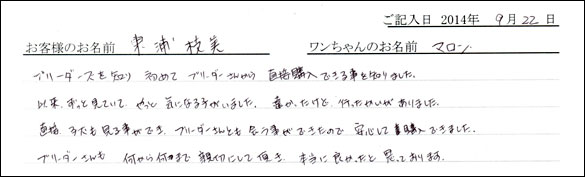 ご記入日 2014年 9月22日
お客様のお名前 東浦 枝美 ワンちゃんのお名前 マロン
ブリーダーズを知り 初めて ブリーダーさんから 直接購入できる事を知りました。
以来、ずっと見ていて、やっと 気になる子がいました。 遠かったけど、行ったかいがありました。
直接 子犬も見る事ができ、ブリーダーさんとも 会う事ができたので 安心して 購入できました。
ブリーダーさんも 何から何まで 親切にして頂き 本当に良かったと思っております。